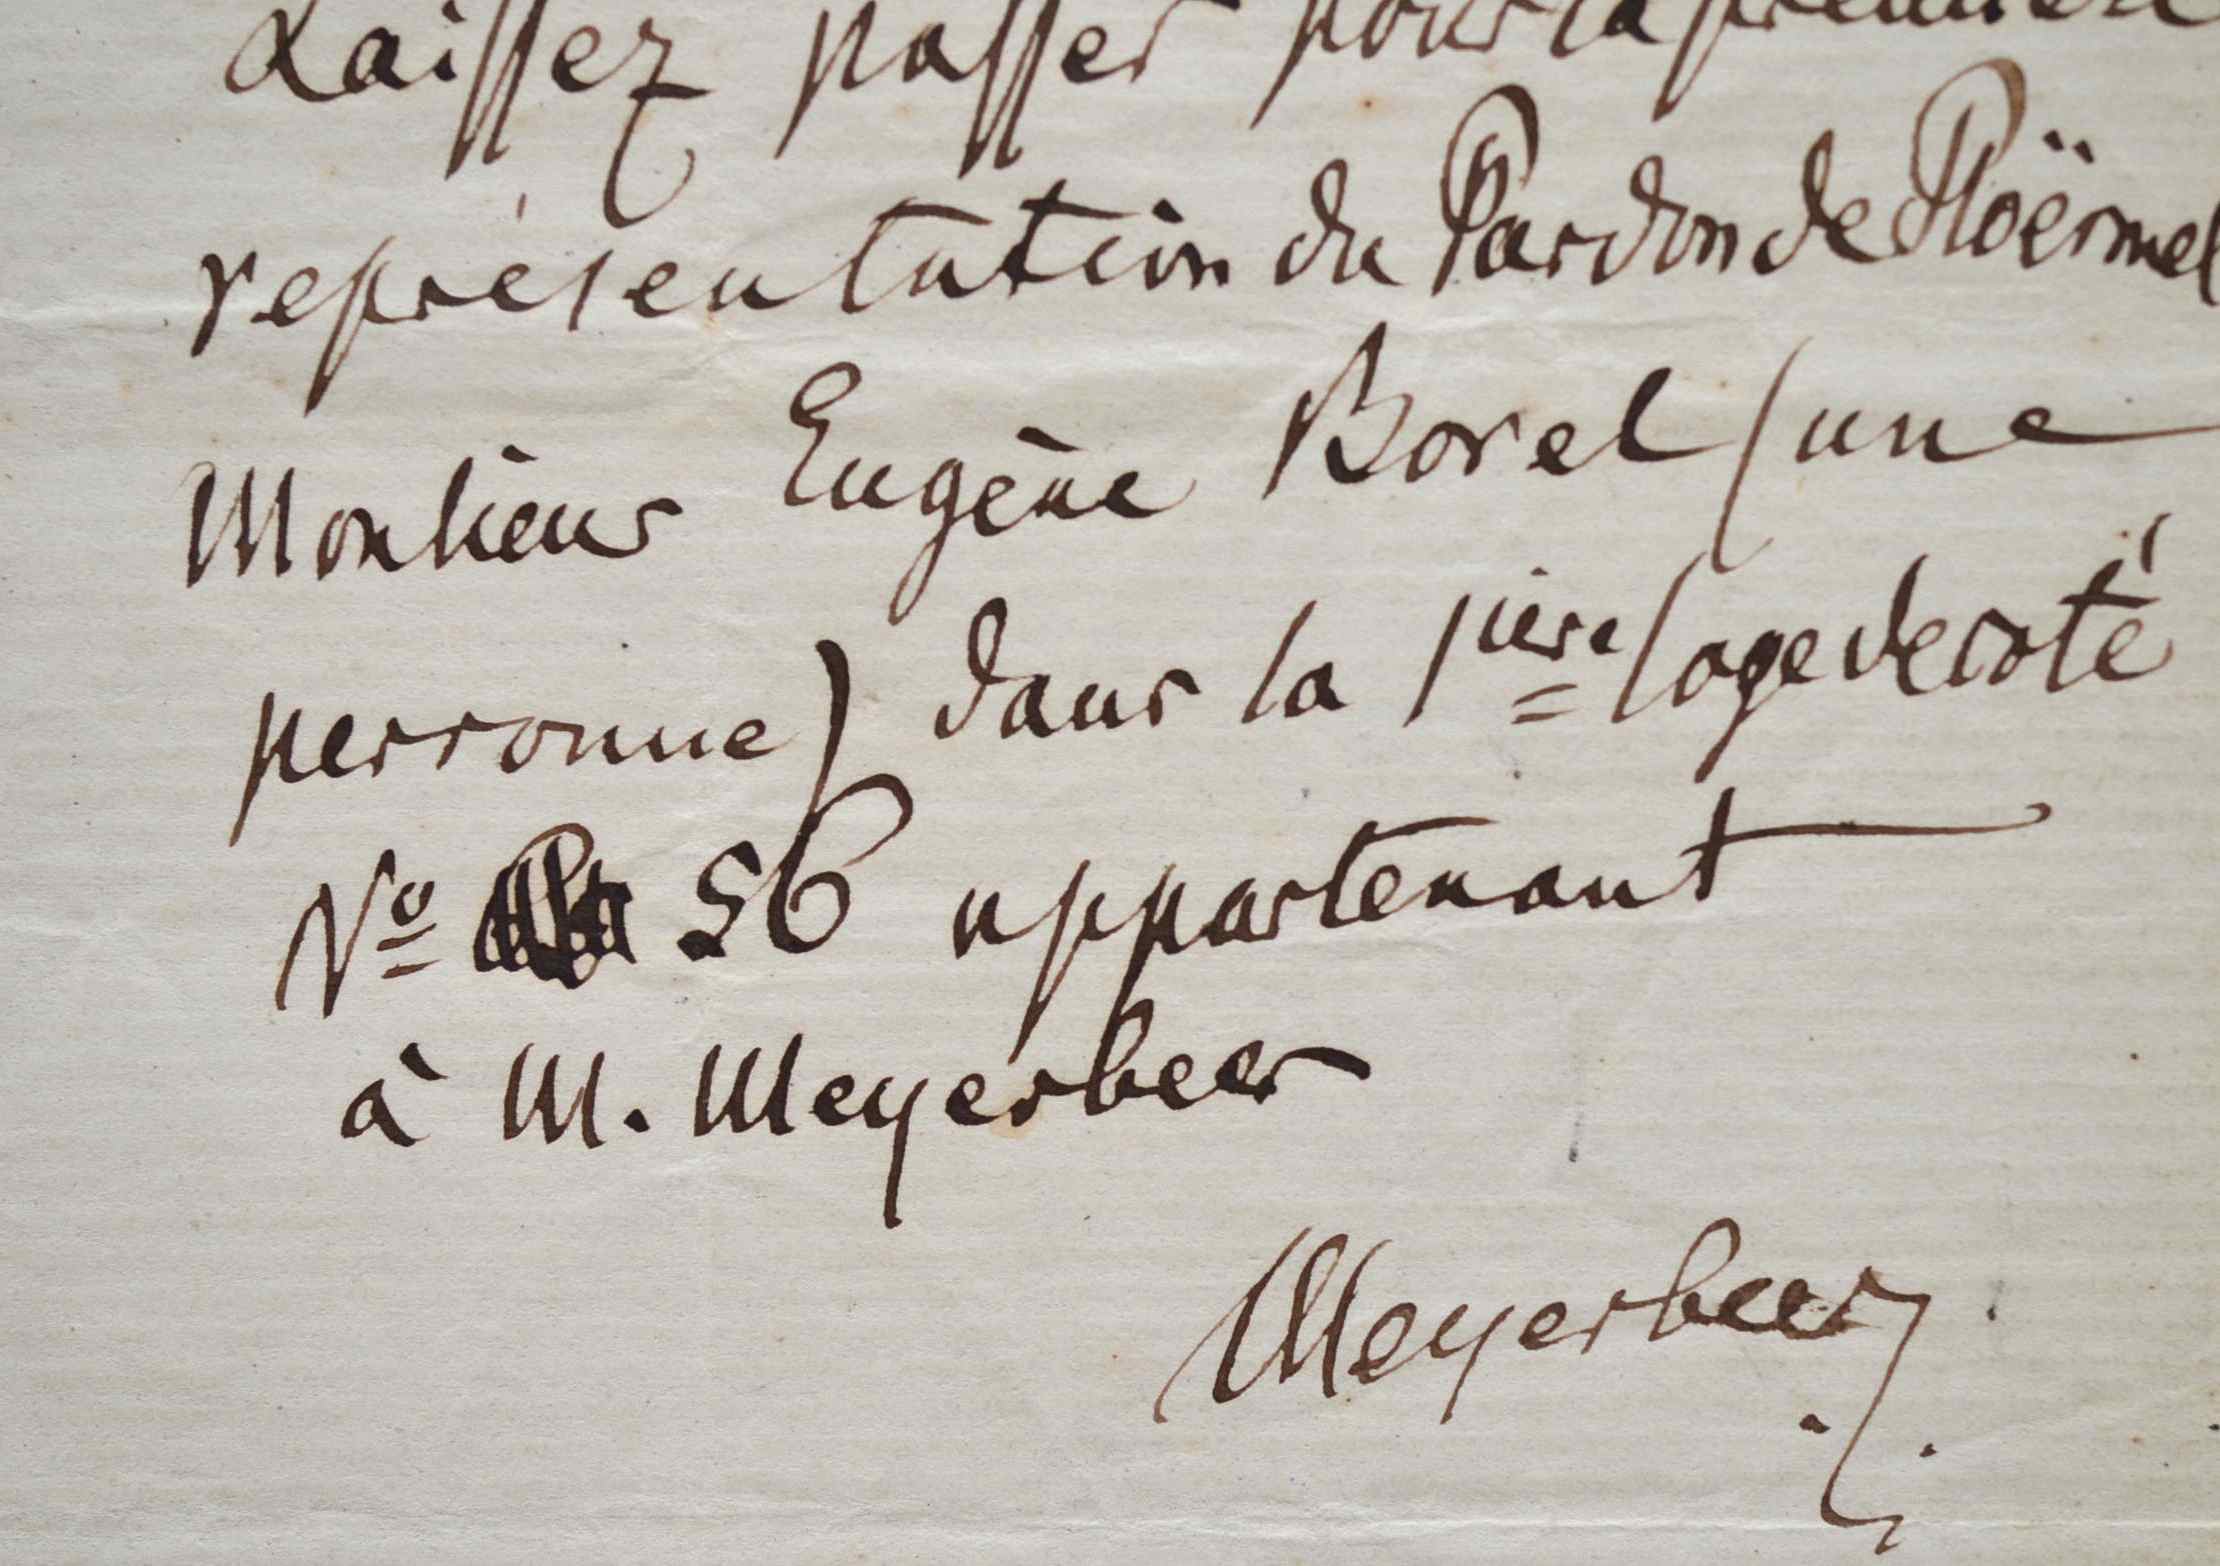 Laissez passer pour la première
représentation du Pardon de Ploërmel
Monsieur Eugène Borel (une
personne) dans la 1ière loge de coté
No 56 appartenant
à M. Meyerbeer
Meyerbeer